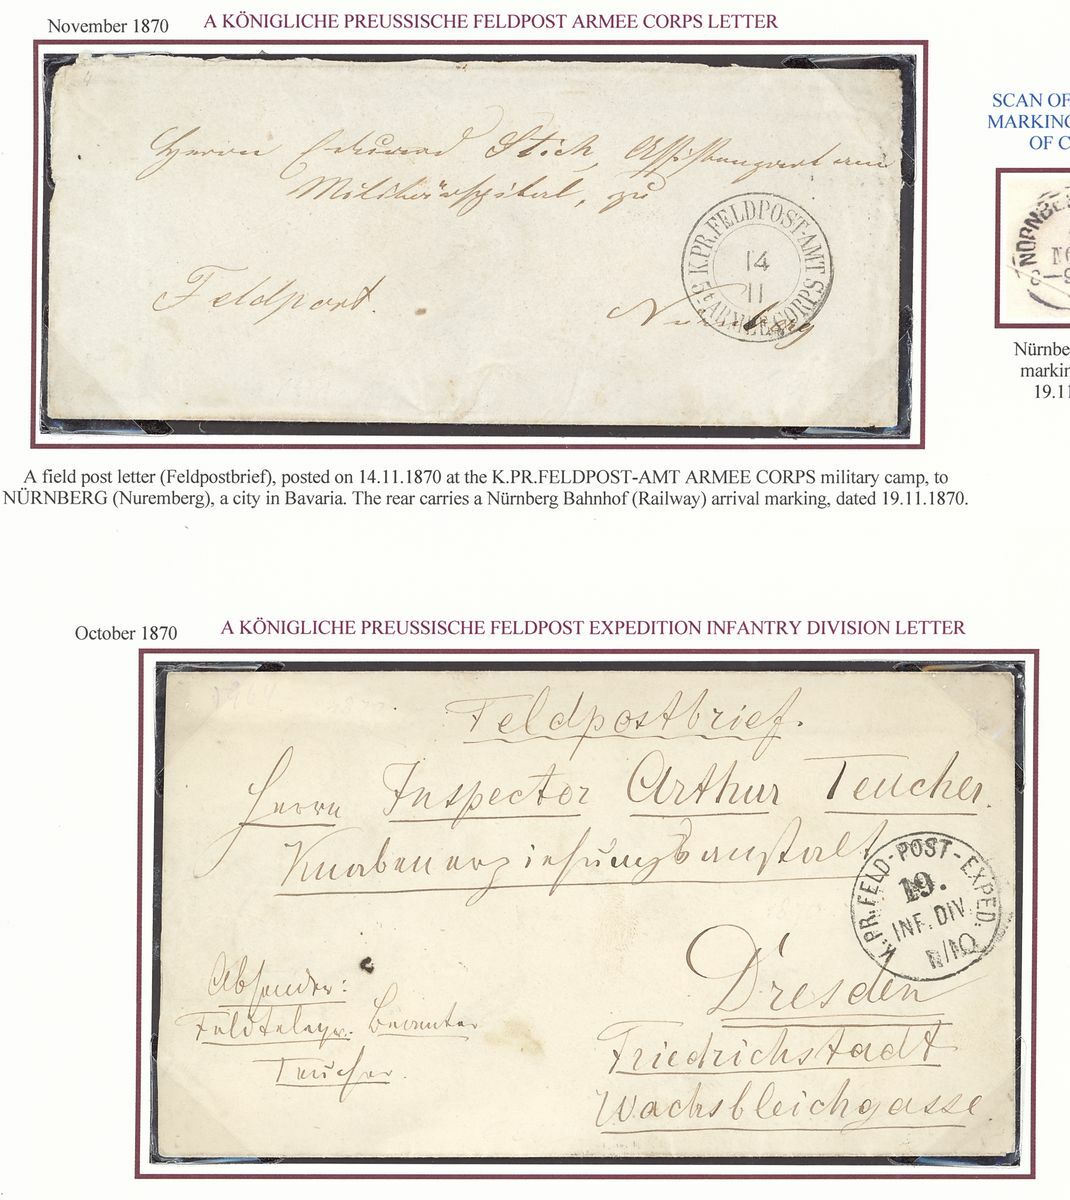 November 1870
A KÖNIGLICHE PREUSSISCHE FELDPOST ARMEE CORPS LETTER
Herrn Eduard Stich, Assistenzarzt am
Militärspital, zu
K.PR.FELDPOST-AMT
14
11
ARMEE CORPS
Feldpost.
Nürnberg
SCAN OF
MARKING
OF C
NÜRNBE
NO
Nürnbe
markin
19.11
A field post letter (Feldpostbrief), posted on 14.11.1870 at the K.PR.FELDPOST-AMT ARMEE CORPS military camp, to
NÜRNBERG (Nuremberg), a city in Bavaria. The rear carries a Nürnberg Bahnhof (Railway) arrival marking, dated 19.11.1870.
October 1870
A KÖNIGLICHE PREUSSISCHE FELDPOST EXPEDITION INFANTRY DIVISION LETTER
Feldpostbrief.
Herrn Inspector Arthur Teucher.
Knabenerziehungsanstalt
K.PR.FELD-POST-EXPED.
19.
INF.DIV.
Dresden
Friedrichstadt
Wachsbleichgasse.
Absender:
Feldtelegr. Beamter
Teucher.